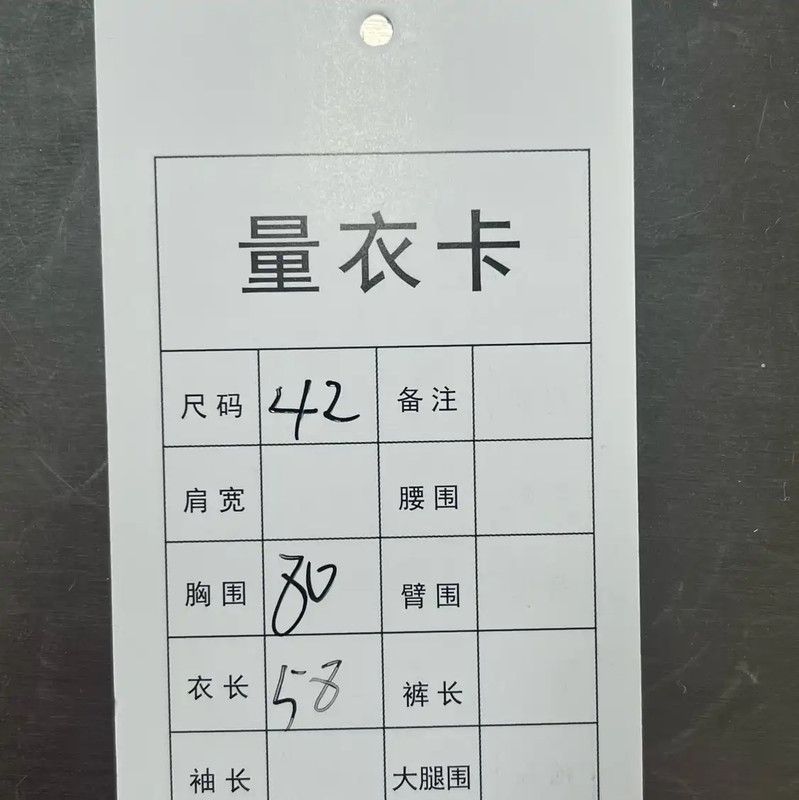 量衣卡
尺码 42 备注
肩宽 腰围
胸围 80 臂围
衣长 58 裤长
袖长 大腿围